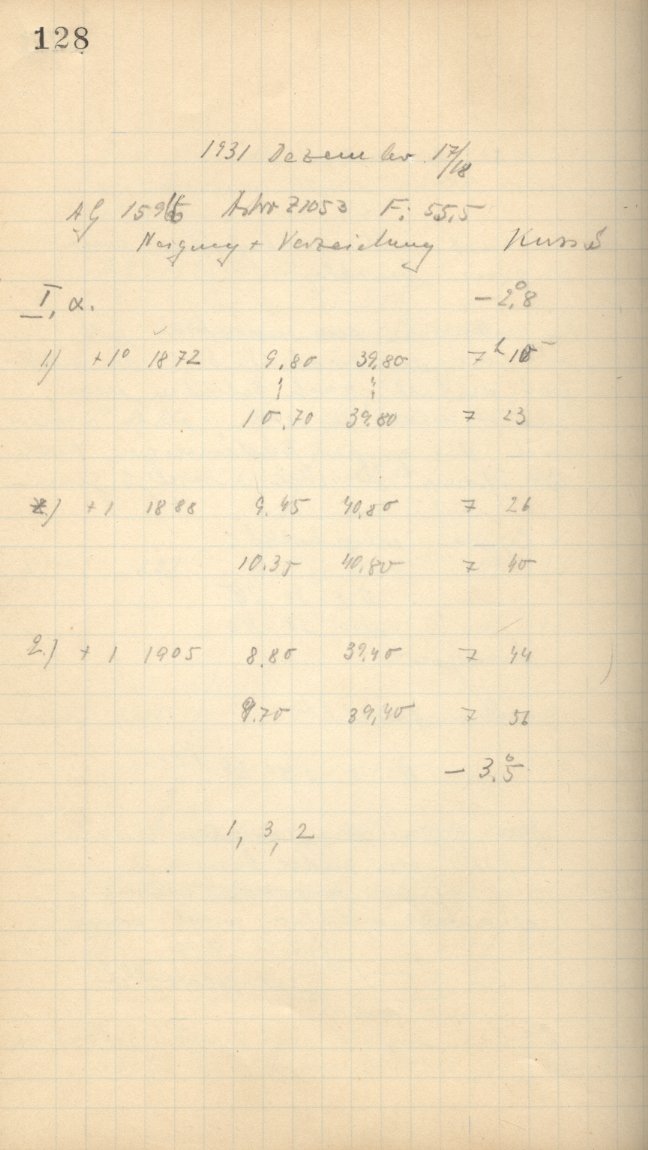 128
1931 Dezember 17/18
AG Astro Z1053 F: 55,5
Neigung + Verzeichnung
I, α. -2,°8
1.) +1° 1872 9,80 39,80 7h
10,70 39,80 7 23
2.) +1 1888 9,45 40,80 7 26
10.35 40,80 7 40
2.) +1 1905 8,80 39,40 7 44
9.70 39,40 7 56
-3,°5
1, 3, 2